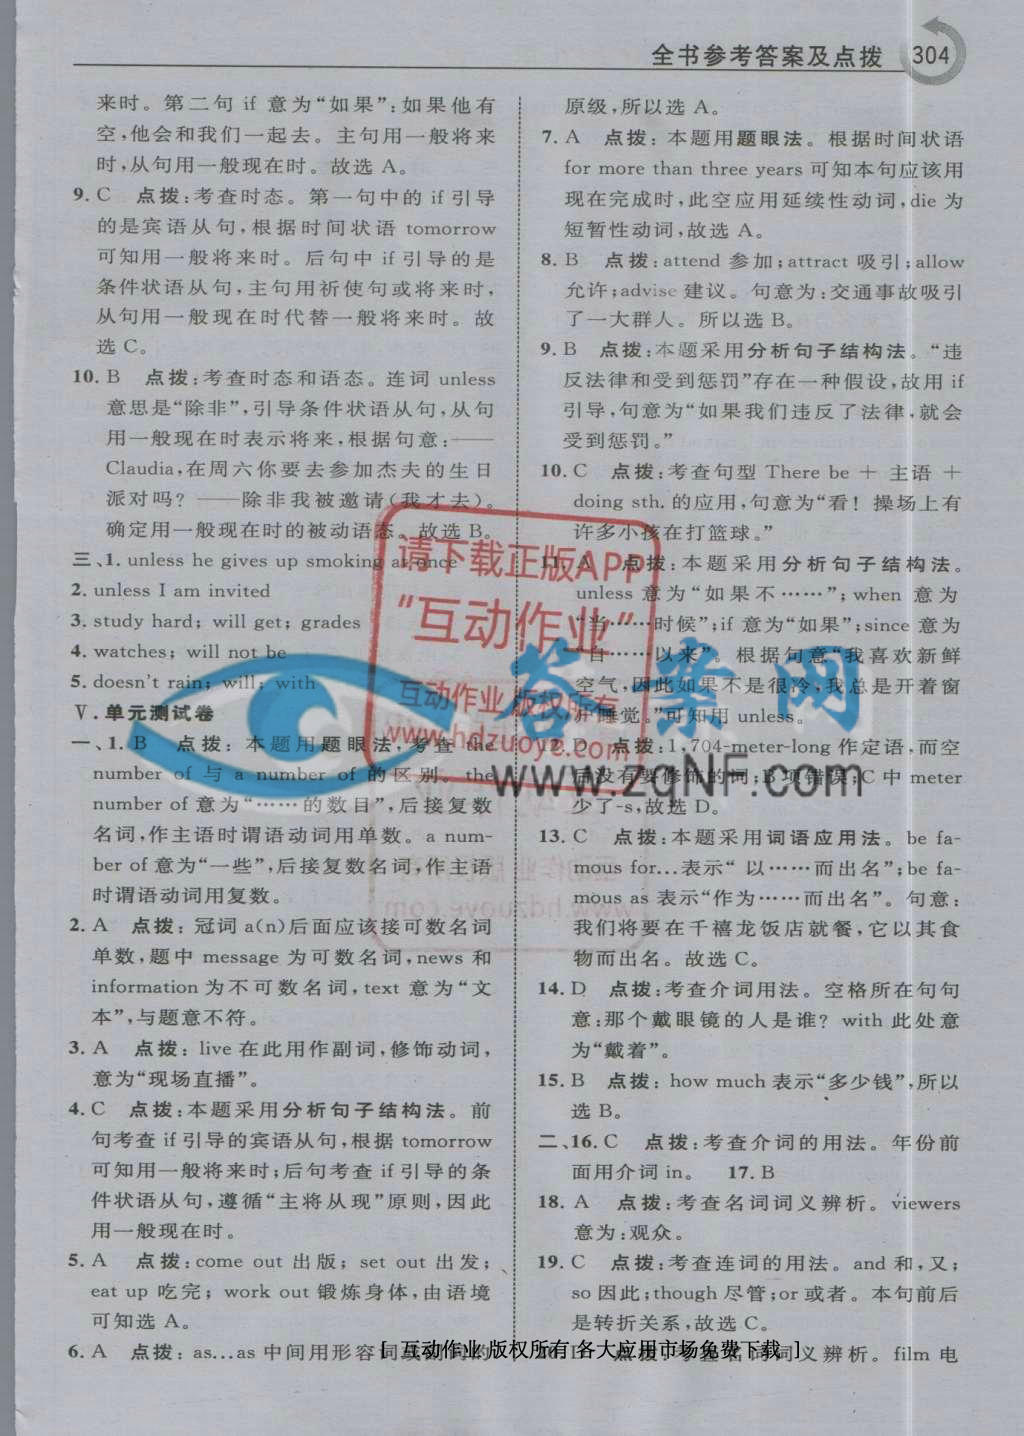 全书参考答案及点拨 304
来时。第二句 if 意为“如果”:如果他有
空,他会和我们一起去。主句用一般将来
时,从句用一般现在时。故选 A。
9. C 点拨:考查时态。第一句中的 if 引导
的是宾语从句,根据时间状语 tomorrow
可知用一般将来时。后句中 if 引导的是
条件状语从句,主句用祈使句或将来时,
从句用一般现在时代替一般将来时。故
选 C。
10. B 点拨:考查时态和语态。连词 unless
意思是“除非”,引导条件状语从句,从句
用一般现在时表示将来,根据句意:——
Claudia,在周六你要去参加杰夫的生日
派对吗? ——除非我被邀请(我才去)。
确定用一般现在时的被动语态。故选 B。
三、1. unless he gives up smoking at once
2. unless I am invited
3. study hard; will get; grades
4. watches; will not be
5. doesn't rain; will; with
Ⅴ. 单元测试卷
一、1. B 点拨: 本题用题眼法,考查 the
number of 与 a number of 的区别。the
number of 意为“……的数目”,后接复数
名词,作主语时谓语动词用单数。a num-
ber of 意为“一些”,后接复数名词,作主语
时谓语动词用复数。
2. A 点拨: 冠词 a(n)后面应该接可数名词
单数,题中 message 为可数名词,news 和
information 为不可数名词,text 意为“文
本”,与题意不符。
3. A 点拨: live 在此用作副词,修饰动词,
意为“现场直播”。
4. C 点拨:本题采用分析句子结构法。前
句考查 if 引导的宾语从句,根据 tomorrow
可知用一般将来时;后句考查 if 引导的条
件状语从句,遵循“主将从现”原则,因此
用一般现在时。
5. A 点拨: come out 出版; set out 出发;
eat up 吃完; work out 锻炼身体,由语境
可知选 A。
6. A 点拨: as...as 中间用形容词或副词的
原级,所以选 A。
7. A 点拨:本题用题眼法。根据时间状语
for more than three years 可知本句应该用
现在完成时,此空应用延续性动词,die 为
短暂性动词,故选 A。
8. B 点拨: attend 参加;attract 吸引;allow
允许;advise 建议。句意为:交通事故吸引
了一大群人。所以选 B。
9. B 点拨:本题采用分析句子结构法。“违
反法律和受到惩罚”存在一种假设,故用 if
引导,句意为“如果我们违反了法律,就会
受到惩罚。”
10. C 点拨:考查句型 There be + 主语 +
doing sth. 的应用,句意为“看! 操场上有
许多小孩在打篮球。”
11. A 点拨:本题采用分析句子结构法。
unless 意为“如果不……”;when 意为
“当……时候”;if 意为“如果”;since 意为
“自……以来”。根据句意“我喜欢新鲜
空气,因此如果不是很冷,我总是开着窗
户睡觉。”可知用 unless。
12. D 点拨:1,704-meter-long 作定语,而空
后没有要修饰的词;B 项错误;C 中 meter
少了-s,故选 D。
13. C 点拨:本题采用词语应用法。be fa-
mous for...表示“以……而出名”;be fa-
mous as 表示“作为……而出名”。句意:
我们将要在千禧龙饭店就餐,它以其食
物而出名。故选 C。
14. D 点拨:考查介词用法。空格所在句句
意:那个戴眼镜的人是谁? with 此处意
为“戴着”。
15. B 点拨: how much 表示“多少钱”,所以
选 B。
二、16. C 点拨:考查介词的用法。年份前
面用介词 in。 17. B
18. A 点拨:考查名词词义辨析。viewers
意为:观众。
19. C 点拨:考查连词的用法。and 和,又;
so 因此;though 尽管;or 或者。本句前后
是转折关系,故选 C。
20. D 点拨:考查名词词义辨析。film 电
请下载正版APP
“互动作业”
互动作业 版权所有
www.hdzuoye.com
答案网
www.zqNF.com
[ 互动作业 版权所有 各大应用市场免费下载 ]